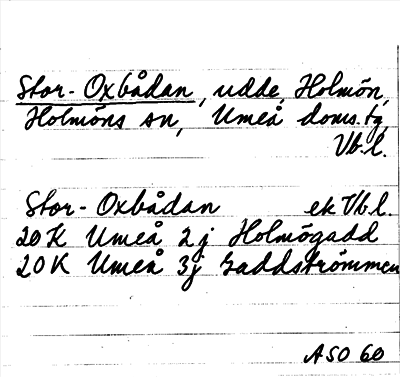 Stor-Oxbådan, udde, Holmön,
Holmöns sn, Umeå doms.tg,
Vb.l.
Stor-Oxbådan ek Vb.l.
20K Umeå 2j Holmögadd
20K Umeå 3j Gaddströmmen
ASO 60